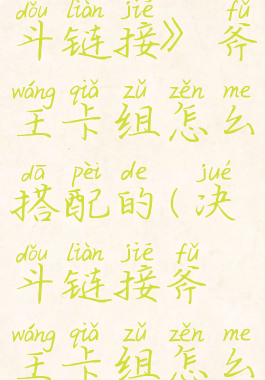 dǒu liàn jiē fǔ
斗链接》 斧
wáng qiǎ zǔ zěn me
王卡组怎么
dā pèi de jué
搭配的(决
dǒu liàn jiē fǔ
斗链接斧
wáng qiǎ zǔ zěn me
王卡组怎么